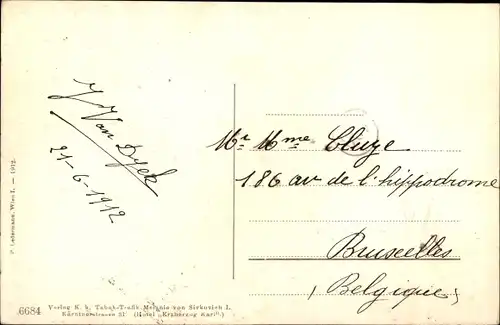 J Van Dyck
21-6-1912
Mr. Mme Cluze
186 av de l'hippodrome
Bruxelles
(Belgique)
P. Ledermann, Wien I. — 1912.
6684
Verlag K. k. Tabak-Trafik Melanie von Sirkovich I.
Kärntnerstrasse 31 (Hotel „Erzherzog Karl").